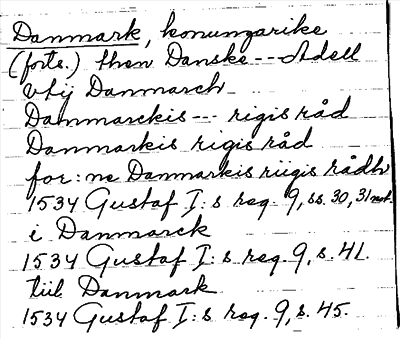 Danmark, konungarike
(forts.) then Danske --- Adell
vtij Danmarch
Danmarckis --- rigis råd
Danmarkis rigis råd
for: ne Danmarkis riigis rådh
1534 Gustaf I:s reg. 9, ss. 30, 31 not.
i Danmarck
1534 Gustaf I:s reg. 9, s. 41.
tiil Danmark
1534 Gustaf I:s reg. 9, s. 45.